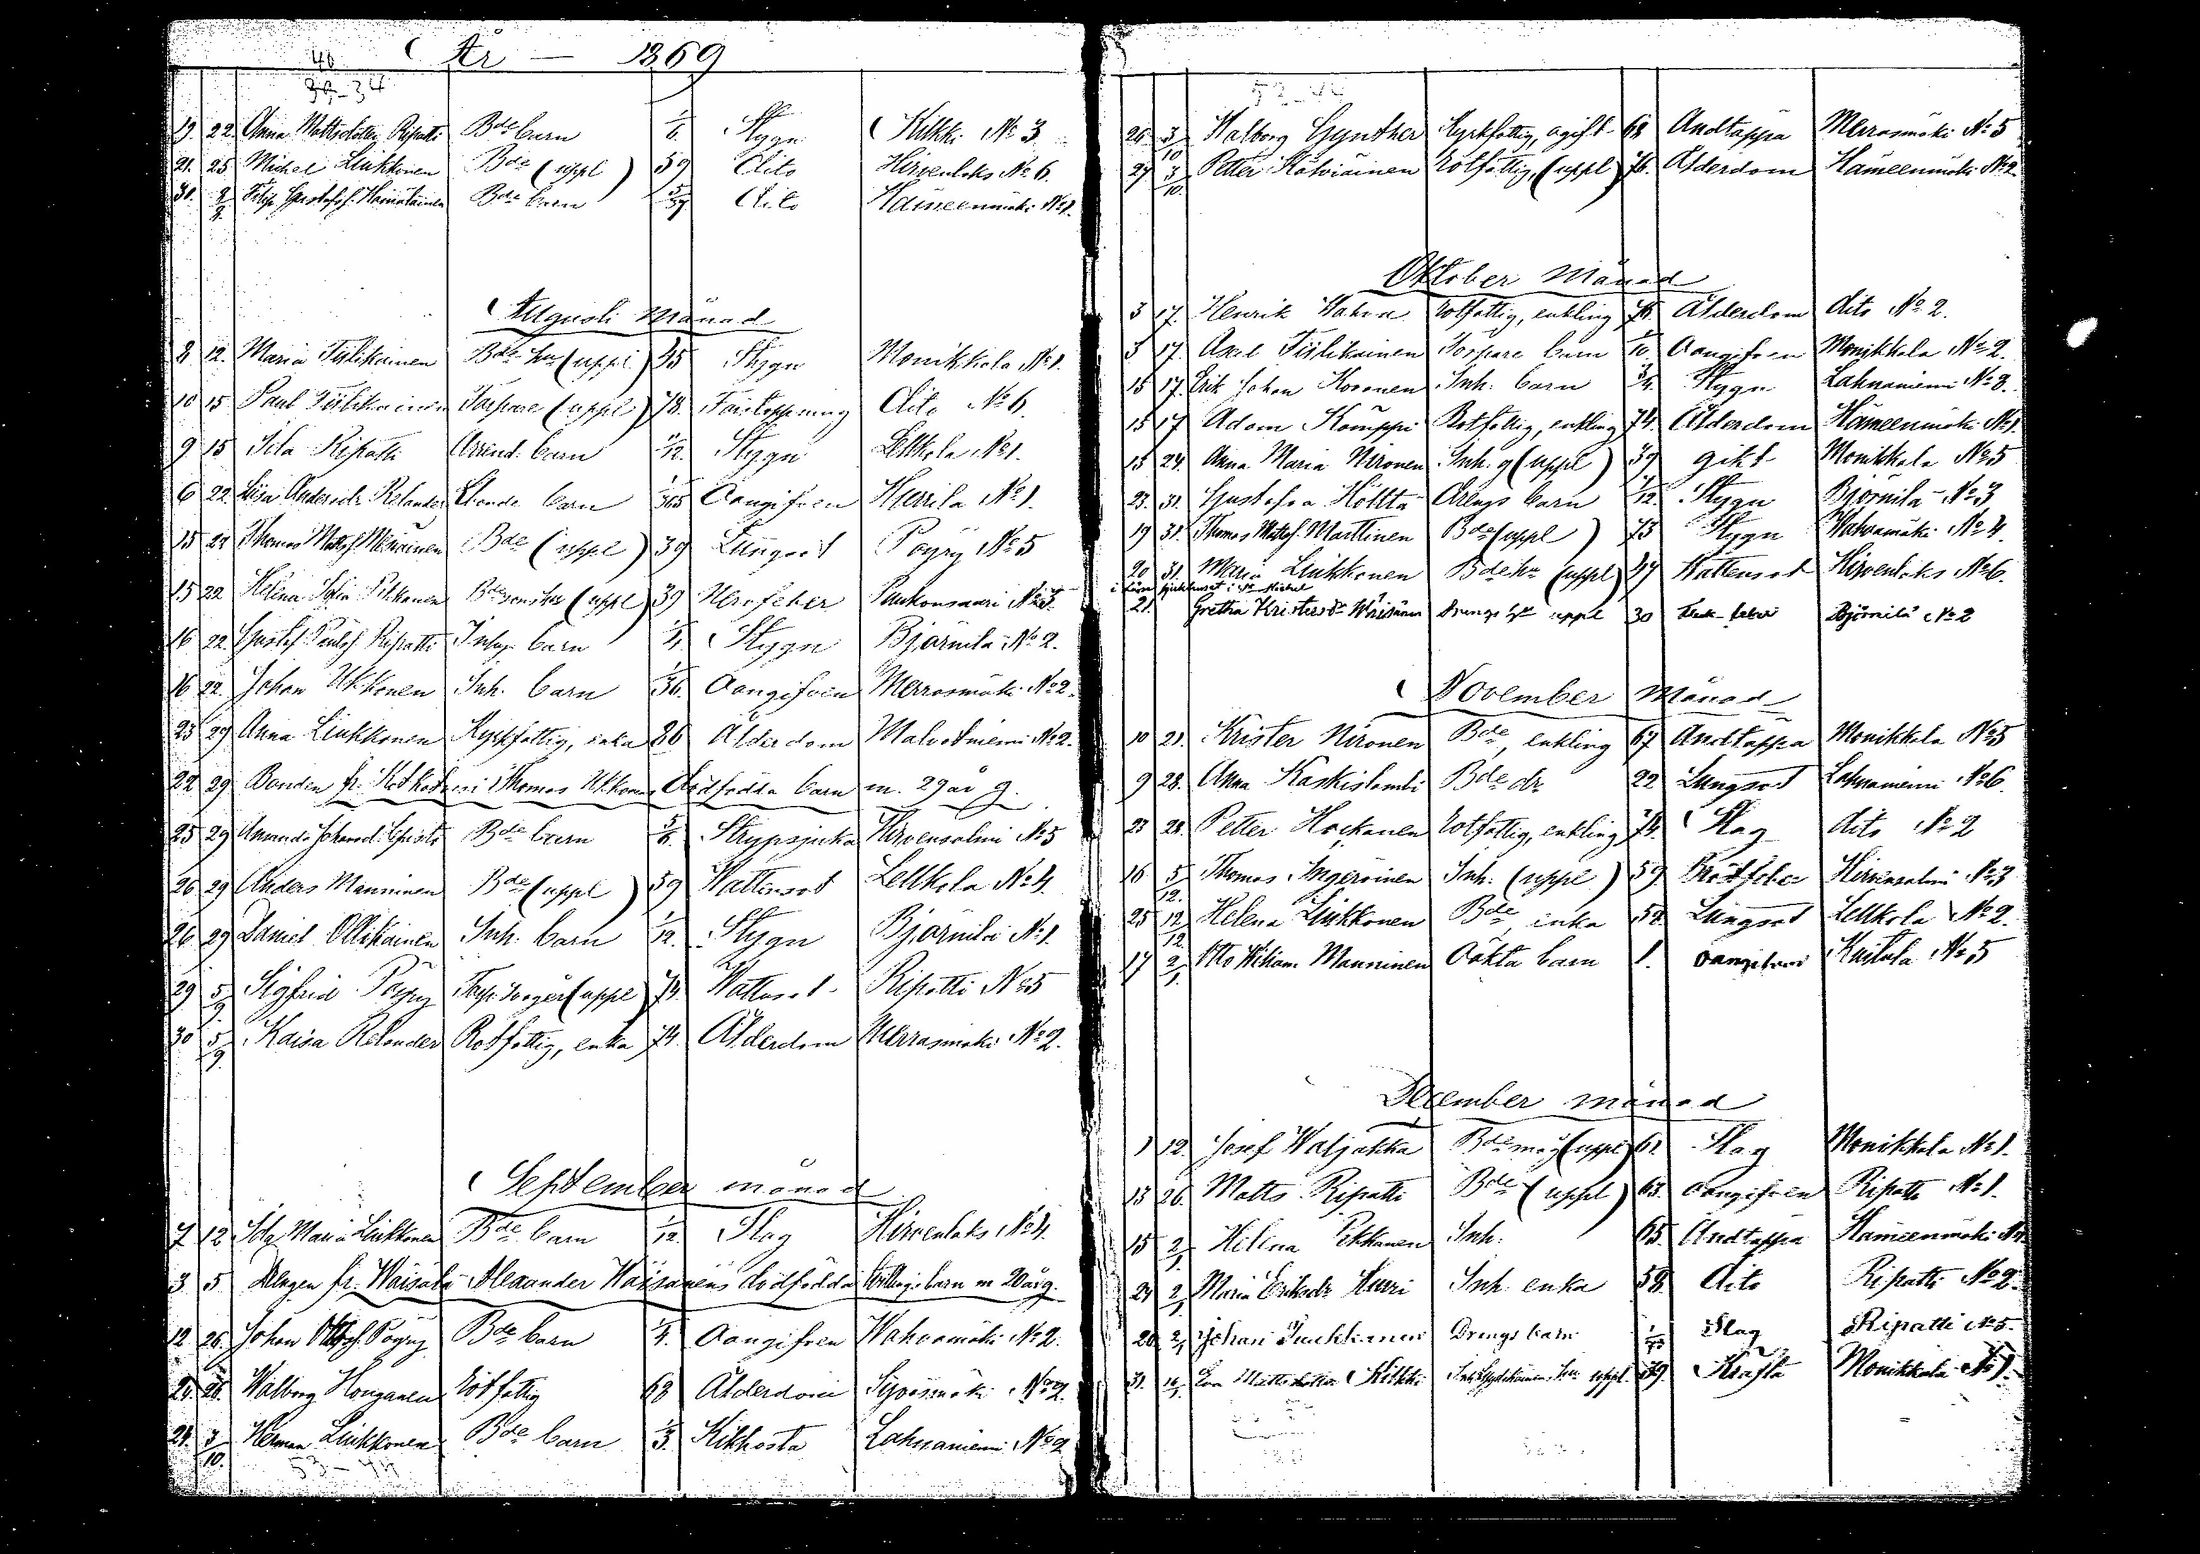 År — 1869
46
39-34
19. 22. Anna Mattsdotter Ripatti Bde barn 1/6. Stygn Kikki No 3
21. 25 Michel Liukkonen Bde (uppl) 59 dito Hirvenlaks No 6.
31. Filip Gustafsf. Hämäläinen Bde barn dito Hämeenmäki No 1.
Augusti Månad
8 12. Maria Tiilikainen Bde hu (uppl) 45 Stygn Monikkala No 1.
10 15 Paul Tiilikainen Torpare (uppl) 78. Förstoppning dito No 6.
9 15 Ida Ripatti Arrend. barn /12. Stygn Lellkola No 1.
6 22 Lisa Andersdr Relander barn /365 Oangifven Hurrila No 1.
15 22 Thomas Mattsf. Bde (uppl) 39 Lungsot Pöyry No 5
15 22 Helena Sofia Pekkonen Bdesons hu (uppl) 39 Nervfeber Paukonsaari No 3.
16 22. Gustaf Paulsf. Ripatti Inhys barn Stygn Björnilä No 2.
16 22. Johan Ukkonen Inh. barn /36. Oangifven Merrasmäki No 2.
25 29 Anna Liukkonen Kyrkfattig, enka 86 Ålderdom No 2.
22 29 Bonden fr. Thomas Ukkonens dödfödda barn m. 29 år g.
25 29 Amanda Johansd. Bde barn Strypsjuka Hirvensalmi No 5
26 29 Anders Manninen Bde (uppl) 59 Wattensot Lellkola No 4.
26 29 Daniel Ollikainen Inh. barn 1/12. Stygn Björnilä No 1.
29 5/9 Sigfrid Pöyry Torp. svåger (uppl) 74. Wattusot Ripatti No 5
30 5/9. Kaisa Relander Rotfattig, enka 74. Ålderdom Merrasmäki No 2.
September månad
7 12 Ida Maria Liukkonen Bde barn /12. Slag Hirvenlaks No 4.
3 5 Drengen fr. Wäisälä Alexander Wäisänens dödfödda tvillingsbarn m 20 år g.
12. 26. Johan Pöyry Bde barn /4. Oangifven Wahvamäki No 2.
24. 26. Walborg Honganen Rotfattig 68 Ålderdom Syväsmäki No 2.
28. 3/10. Herman Liukkonen Bde barn /3. Kikhosta Lahnaniemi No 2
53-44
26. 3/10 Walborg Gynther Kyrkfattig, ogift 68 Andtäppa Merrasmäki No 5
27 3/10. Petter Rotfattig, (uppl) 76. Ålderdom Hämeenmäki No 2
Oktober månad
3 17. Henrik Rotfattig, enkling 76 Ålderdom dito No 2.
5 17. Axel Tiilikainen Torpare barn /10. Oangifven Monikkala No 2.
15 17. Erik Johan Kovonen Inh. barn 3/4. Stygn Lahnaniemi No 3.
15 17 Adam Kämppi Rotfattig, enkling 74. Ålderdom Hämeenmäki No 1.
15 24. Anna Maria Nironen Inh. g (uppl) 39 gikt Monikkala No 5
23. 31. Gustafva Hölttä Drengs barn /12. Stygn Björnilä No 3
19 31. Thomas Mattsf. Marttinen Bde (uppl) 73 Stygn Wahvamäki No 4.
20 31. Maria Liukkonen Bde hu (uppl) 47 Wattensot Hirvenlaks No 6.
21. Gretha Kristersdr Wäisänen Drengs hu uppl 30 Björnilä No 2
November Månad
10 21. Krister Nironen Bde, enkling 67 Andtäppa Monikkala No 5
9 28. Anna Kaskislambi Bde dr 22 Lungsot Lahnaniemi No 6.
23 28. Petter Hokkanen Rotfattig, enkling 74. Slag dito No 2
16 5/12. Thomas Ingeroinen Inh. (uppl) 59 Rötfeber Hirvensalmi No 3
25 12/12 Helena Liukkonen Bde enka 52. Lungsot Lellkola No 2.
17 2/1 Otto Wilhiam Manninen Oäkta barn 1. oangifven Kaitala No 5
December månad
1 12. Josef Waljakka Bde måg (uppl) 61. Slag Monikkala No 1.
13 26. Matts Ripatti Bde (uppl) 63. oangifven Ripatti No 1.
15 2/1 Helena Pekkanen Inh. 65. Andtäppa Hämeenmäki
24 2/1 Maria Eriksdr Hurri Inh. enka 58. dito Ripatti No 2.
28 2/1 Johan Drengs barn Slag Ripatti No 5.
31. Eva Mattsdotter Kikki uppl. 39. Kräfta Monikkala No 1.